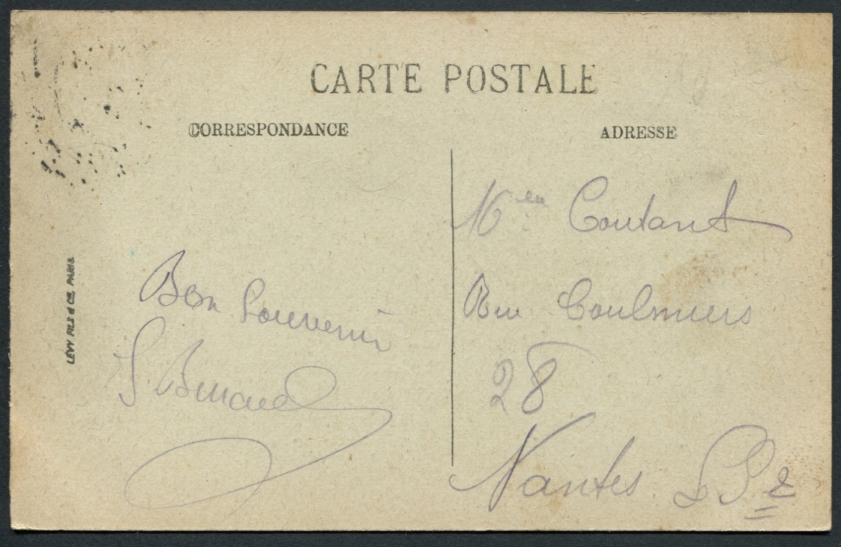 CARTE POSTALE
CORRESPONDANCE
ADRESSE
LÉVY FILS & Cie, PARIS
Bon Souvenir
Coutant
Rue Coulmiers
28
Nantes